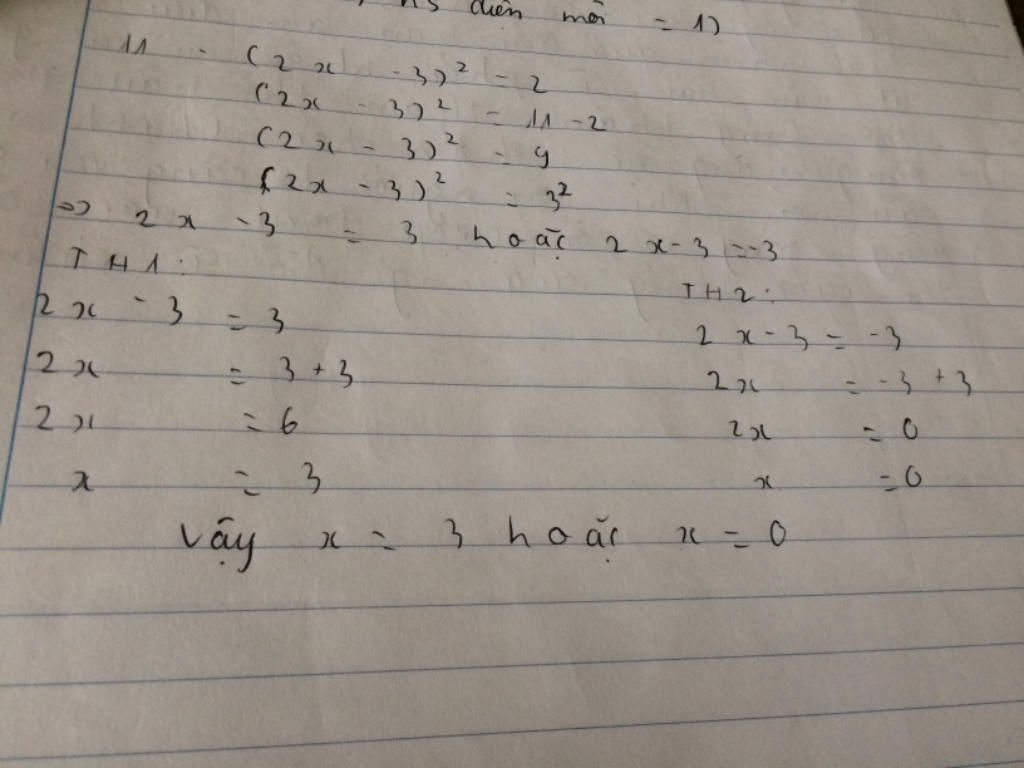 diện mới = 1)
11 - (2x - 3)² = 2
(2x - 3)² = 11 - 2
(2x - 3)² = 9
(2x - 3)² = 3²
=> 2x - 3 = 3 hoặc 2x - 3 = -3
TH1:
2x - 3 = 3
2x = 3 + 3
2x = 6
x = 3
TH2:
2x - 3 = -3
2x = -3 + 3
2x = 0
x = 0
Vậy x = 3 hoặc x = 0